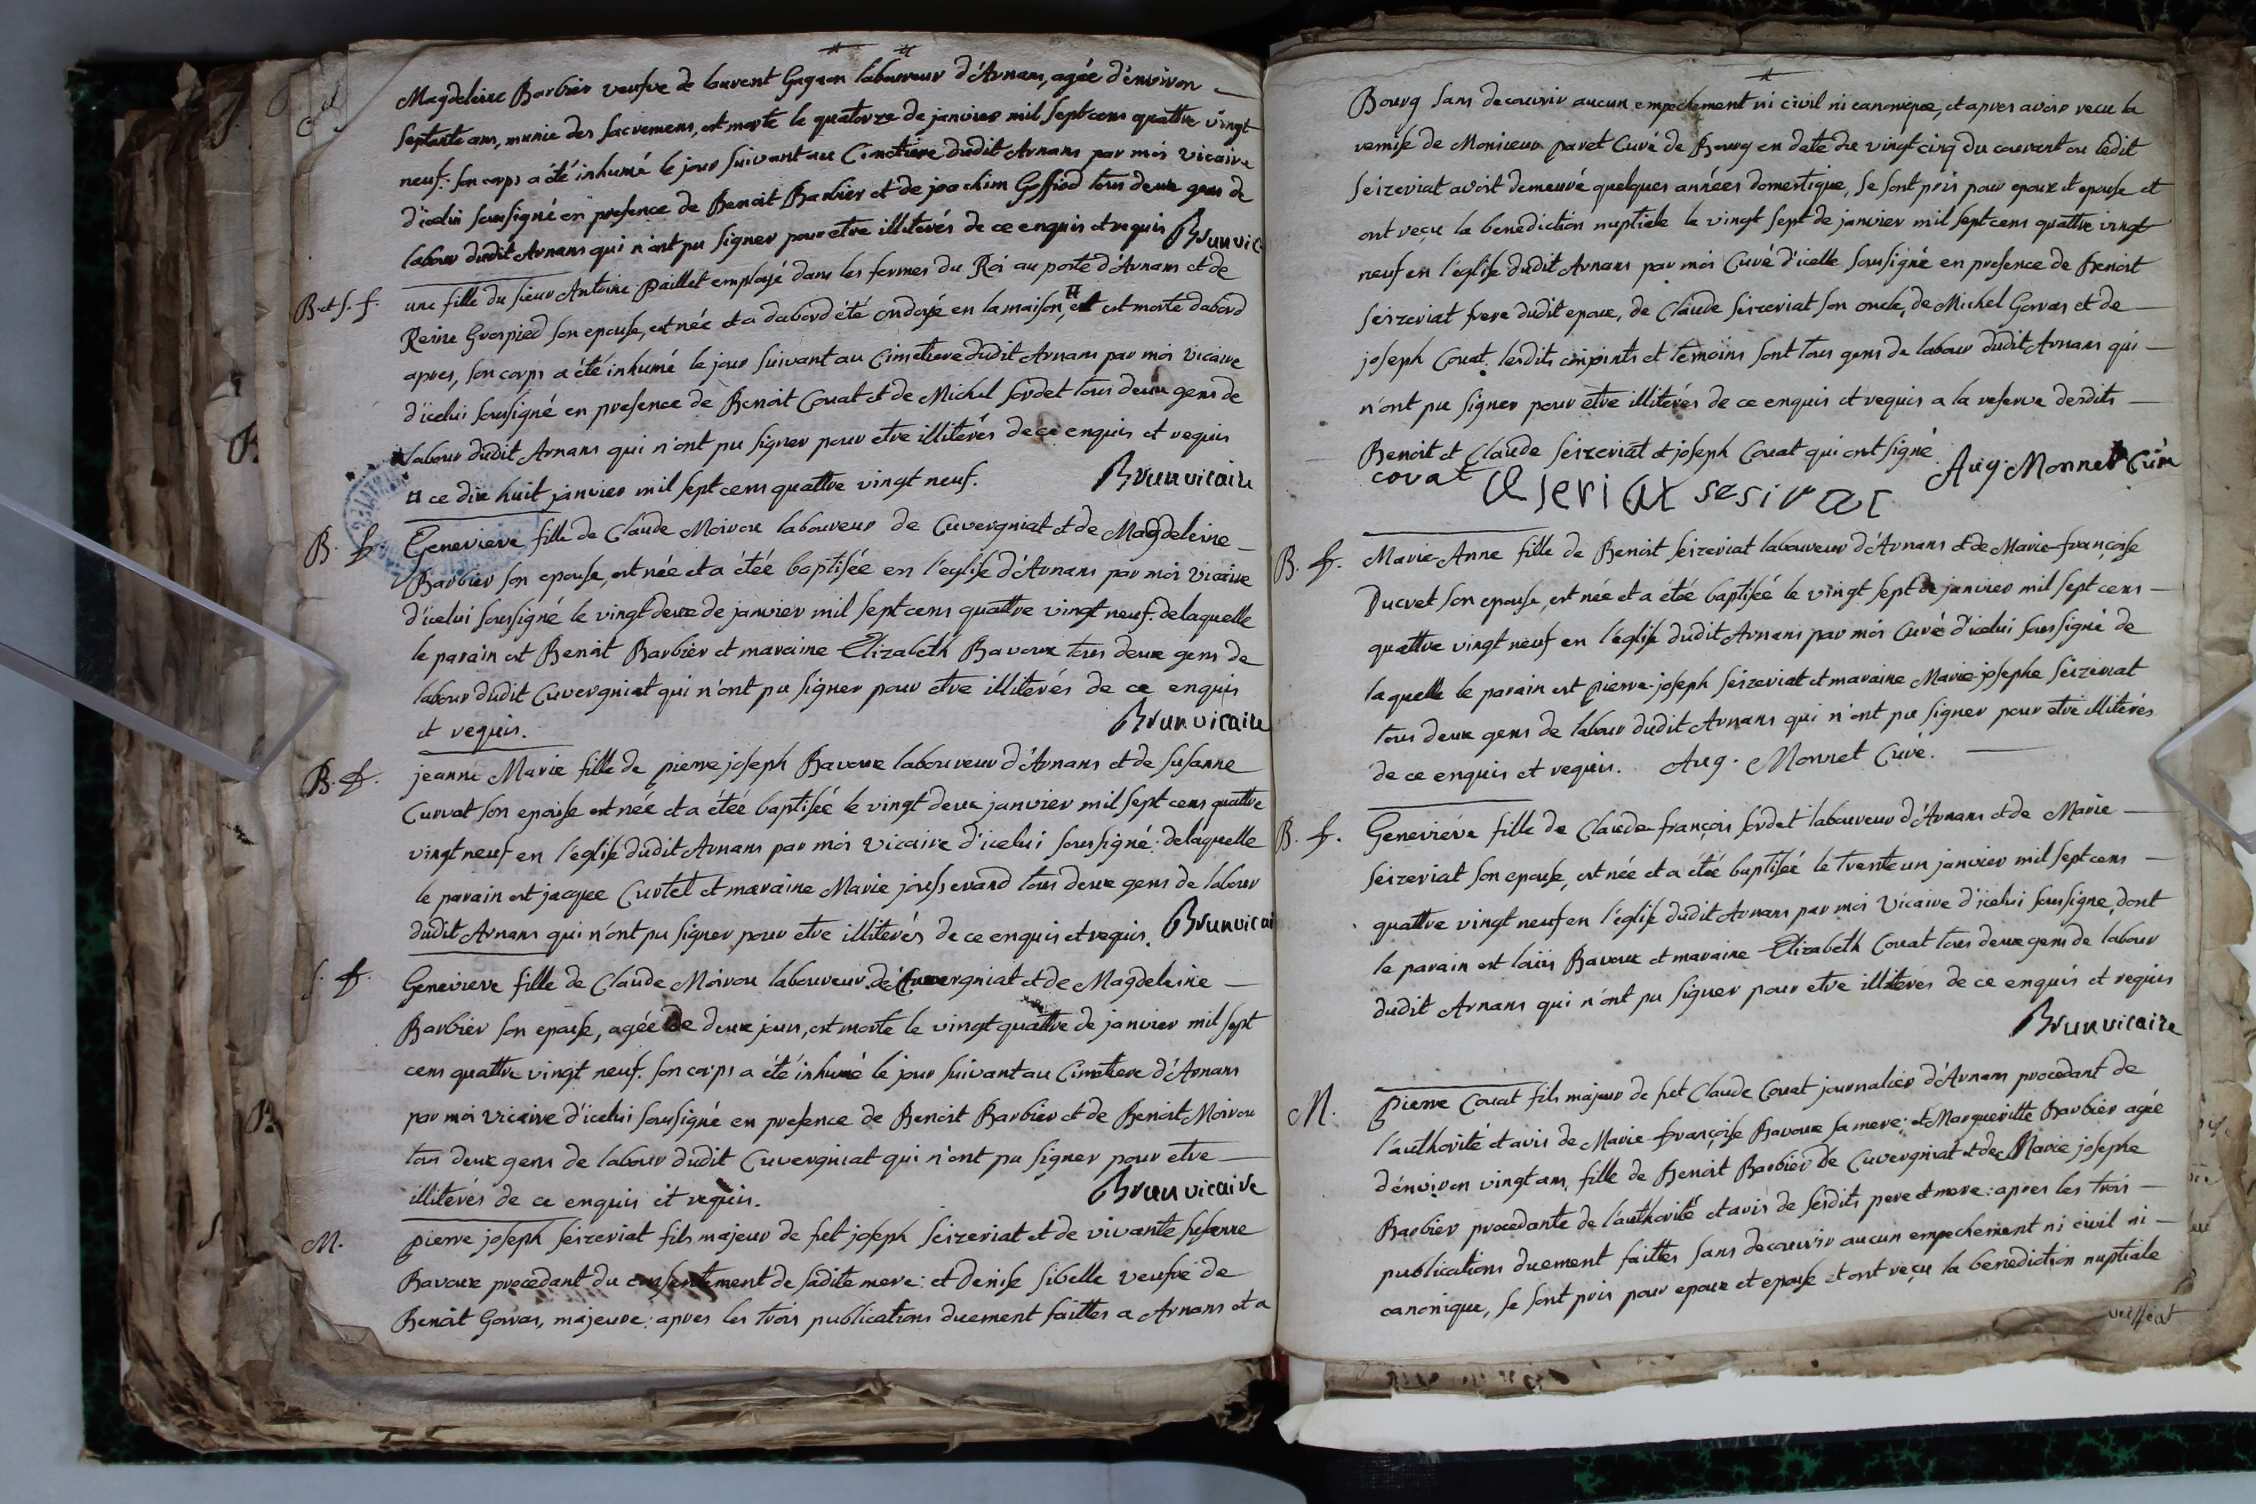 Magdeleine Barbier veufve de laurent Gagnon laboureur d'Arnans, agée d'environ
septante ans, munie des sacremens, est morte le quatorze de janvier mil sept cens quattre vingt
neuf: son corps a été inhumé le jour suivant au Cimetiere dudit Arnans par moi vicaire
d'icelui sousigné en presence de Benoit Barbier et de joachim Goffiod tous deux gens de
labour dudit Arnans qui n'ont pu signer pour etre illiterés de ce enquis et requis Brun vic
B. et S. f. une fille du sieur Antoine Paillet employé dans les fermes du Roi au poste d'Arnans et de
Reine Grospied son epouse, est née et a dabord été ondoyé en la maison, ¤ et est morte dabord
apres, son corps a été inhumé le jour suivant au Cimetiere dudit Arnans par moi vicaire
d'icelui sousigné en presence de Benoit Couat et de Michel Sordet tous deux gens de
labour dudit Arnans qui n'ont pu signer pour etre illiterés de ce enquis et requis
¤ ce dix huit janvier mil sept cens quattre vingt neuf. Brun vicaire
B. f. Genevieve fille de Claude Moiroux laboureur de Cuvergniat et de Magdeleine
Barbier son epouse, est née et a étée baptisée en l'eglise d'Arnans par moi vicaire
d'icelui sousigné le vingt deux de janvier mil sept cens quattre vingt neuf. de laquelle
le parain est Benoit Barbier et maraine Elizabeth Bavoux tous deux gens de
labour dudit Cuvergniat qui n'ont pu signer pour etre illiterés de ce enquis
et requis. Brun vicaire
B. f. jeanne Marie fille de pierre joseph Bavoux laboureur d'Arnans et de Susanne
Curvat son epouse est née et a étée baptisée le vingt deux janvier mil sept cens quattre
vingt neuf en l'eglise dudit Arnans par moi vicaire d'icelui sousigné: de laquelle
le parain est jacque Curtet et maraine Marie jousserand tous deux gens de labour
dudit Arnans qui n'ont pu signer pour etre illiterés de ce enquis et requis. Brun vicai
S. f. Genevieve fille de Claude Moiroux laboureur de Cuvergniat et de Magdeleine
Barbier son epouse, agée de deux jours, est morte le vingt quattre de janvier mil sept
cens quattre vingt neuf. son corps a été inhumé le jour suivant au Cimetiere d'Arnans
par moi vicaire d'icelui sousigné en presence de Benoit Barbier et de Benoit Moiroux
tous deux gens de labour dudit Cuvergniat qui n'ont pu signer pour etre
illiterés de ce enquis et requis. Brun vicaire
M. pierre joseph Seizeriat fils majeur de fut joseph Seizeriat et de vivante
Bavoux procedant du consentement de sadite mere: et Denise Sibelle veufve de
Benoit Gorvas, majeure: apres les trois publications duement faittes a Arnans et a
Bourg sans decouvrir aucun empechement ni civil ni canonique, et apres avoir reçu la
remise de Monsieur paret Curé de Bourg en date du vingt cinq du courant ou ledit
Seizeriat avoit demeuré quelques années domestique, se sont pris pour epoux et epouse et
ont reçu la benediction nuptiale le vingt sept de janvier mil sept cens quattre vingt
neuf en l'eglise dudit Arnans par moi Curé d'icelle sousigné en presence de Benoit
Seizeriat frere dudit epoux, de Claude Seizeriat son oncle, de Michel Gorvas et de
joseph Couat. lesdits conjoints et temoins sont tous gens de labour dudit Arnans qui
n'ont pu signer pour etre illiterés de ce enquis et requis a la reserve desdits
Benoit et Claude Seizeriat et joseph Couat qui ont signé
covat Aug. Monnet Curé
B. f. Marie-Anne fille de Benoit Seizeriat laboureur d'Arnans et de Marie-françoise
Ducret son epouse, est née et a étée baptisée le vingt sept de janvier mil sept cens
quattre vingt neuf en l'eglise dudit Arnans par moi Curé d'icelui sousigné de
laquelle le parain est pierre-joseph Seizeriat et maraine Marie-josephe Seizeriat
tous deux gens de labour dudit Arnans qui n'ont pu signer pour etre illiterés
de ce enquis et requis. Aug. Monnet Curé.
B. f. Geneviéve fille de Claude-françois Sordet laboureur d'Arnans et de Marie
Seizeriat son epouse, est née et a étée baptisée le trente un janvier mil sept cens
quattre vingt neuf en l'eglise dudit Arnans par moi Vicaire d'icelui sousigné, dont
le parain est loüis Bavoux et maraine Elizabeth Couat tous deux gens de labour
dudit Arnans qui n'ont pu signer pour etre illiterés de ce enquis et requis
Brun vicaire
M. pierre Couat fils majeur de fut Claude Couat journalier d'Arnans procedant de
l'authorité et avis de Marie-françoise Bavoux sa mere: et Margueritte Barbier agée
d'environ vingt ans, fille de Benoit Barbier de Cuvergniat et de Marie josephe
Barbier procedante de l'authorité et avis de sesdits pere et mere: apres les trois
publications duement faittes sans decouvrir aucun empechement ni civil ni
canonique, se sont pris pour epoux et epouse et ont reçu la benediction nuptiale